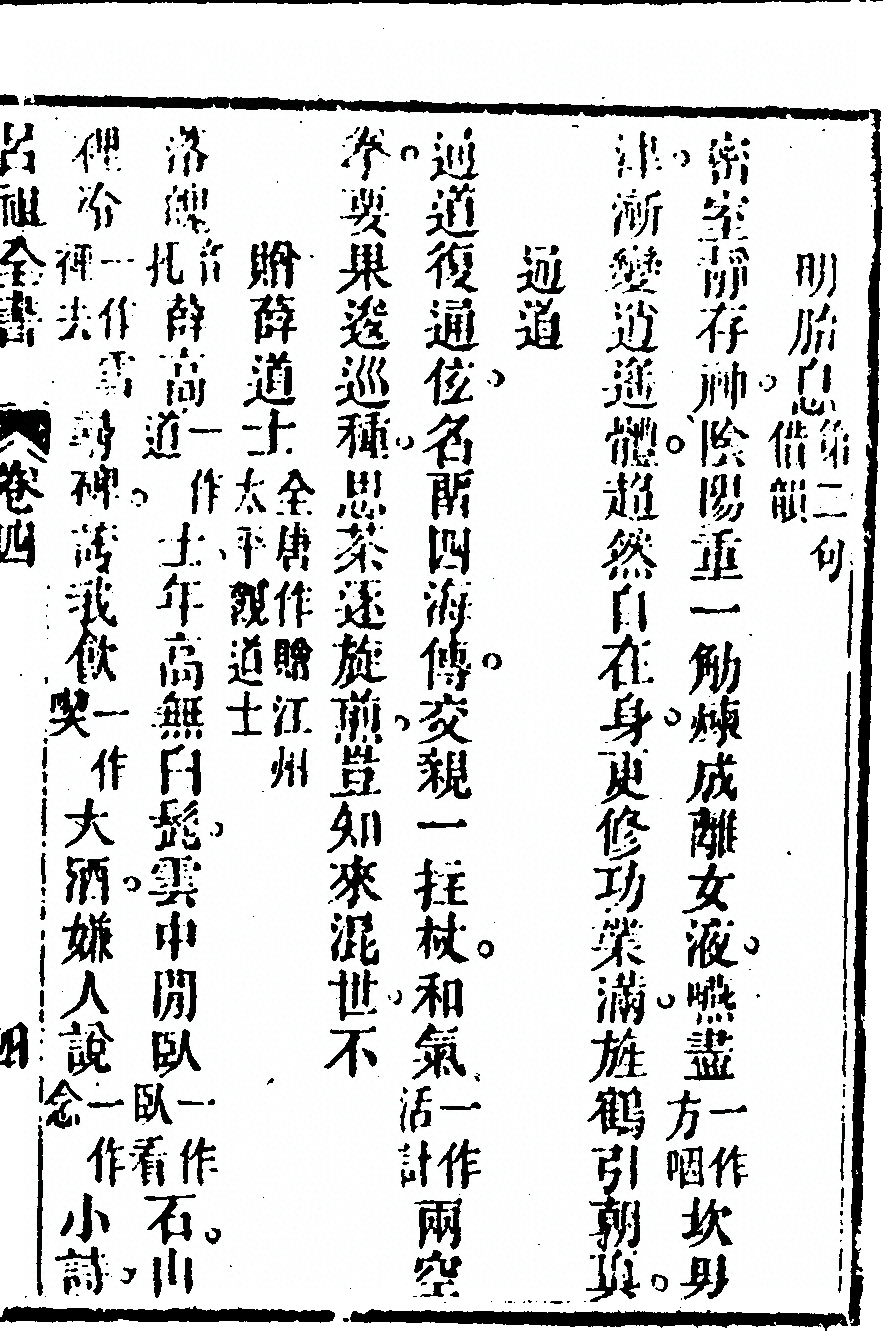 明胎息第二句借韻
密室靜存神。陰陽重一觔煉成離女液。嚥盡一作方咽坎男
津。漸變逍遙體。超然自在身。更修功業滿。旌鶴引朝真。
通道
通道復通位。名留四海傳。交親一拄杖。和氣一作活計兩空
拳。要果逡巡種。思茶逐旋煎。豈知來混世。不
贈薛道士全唐作贈江州太平觀道士
落魄薛高一作道士、年高無白髭。雲中閒臥一作臥看石。山
裡冷一作雲裡去尋碑。誇我飲一作喫大酒。嫌人說一作念小詩。
呂祖全書 卷四 四